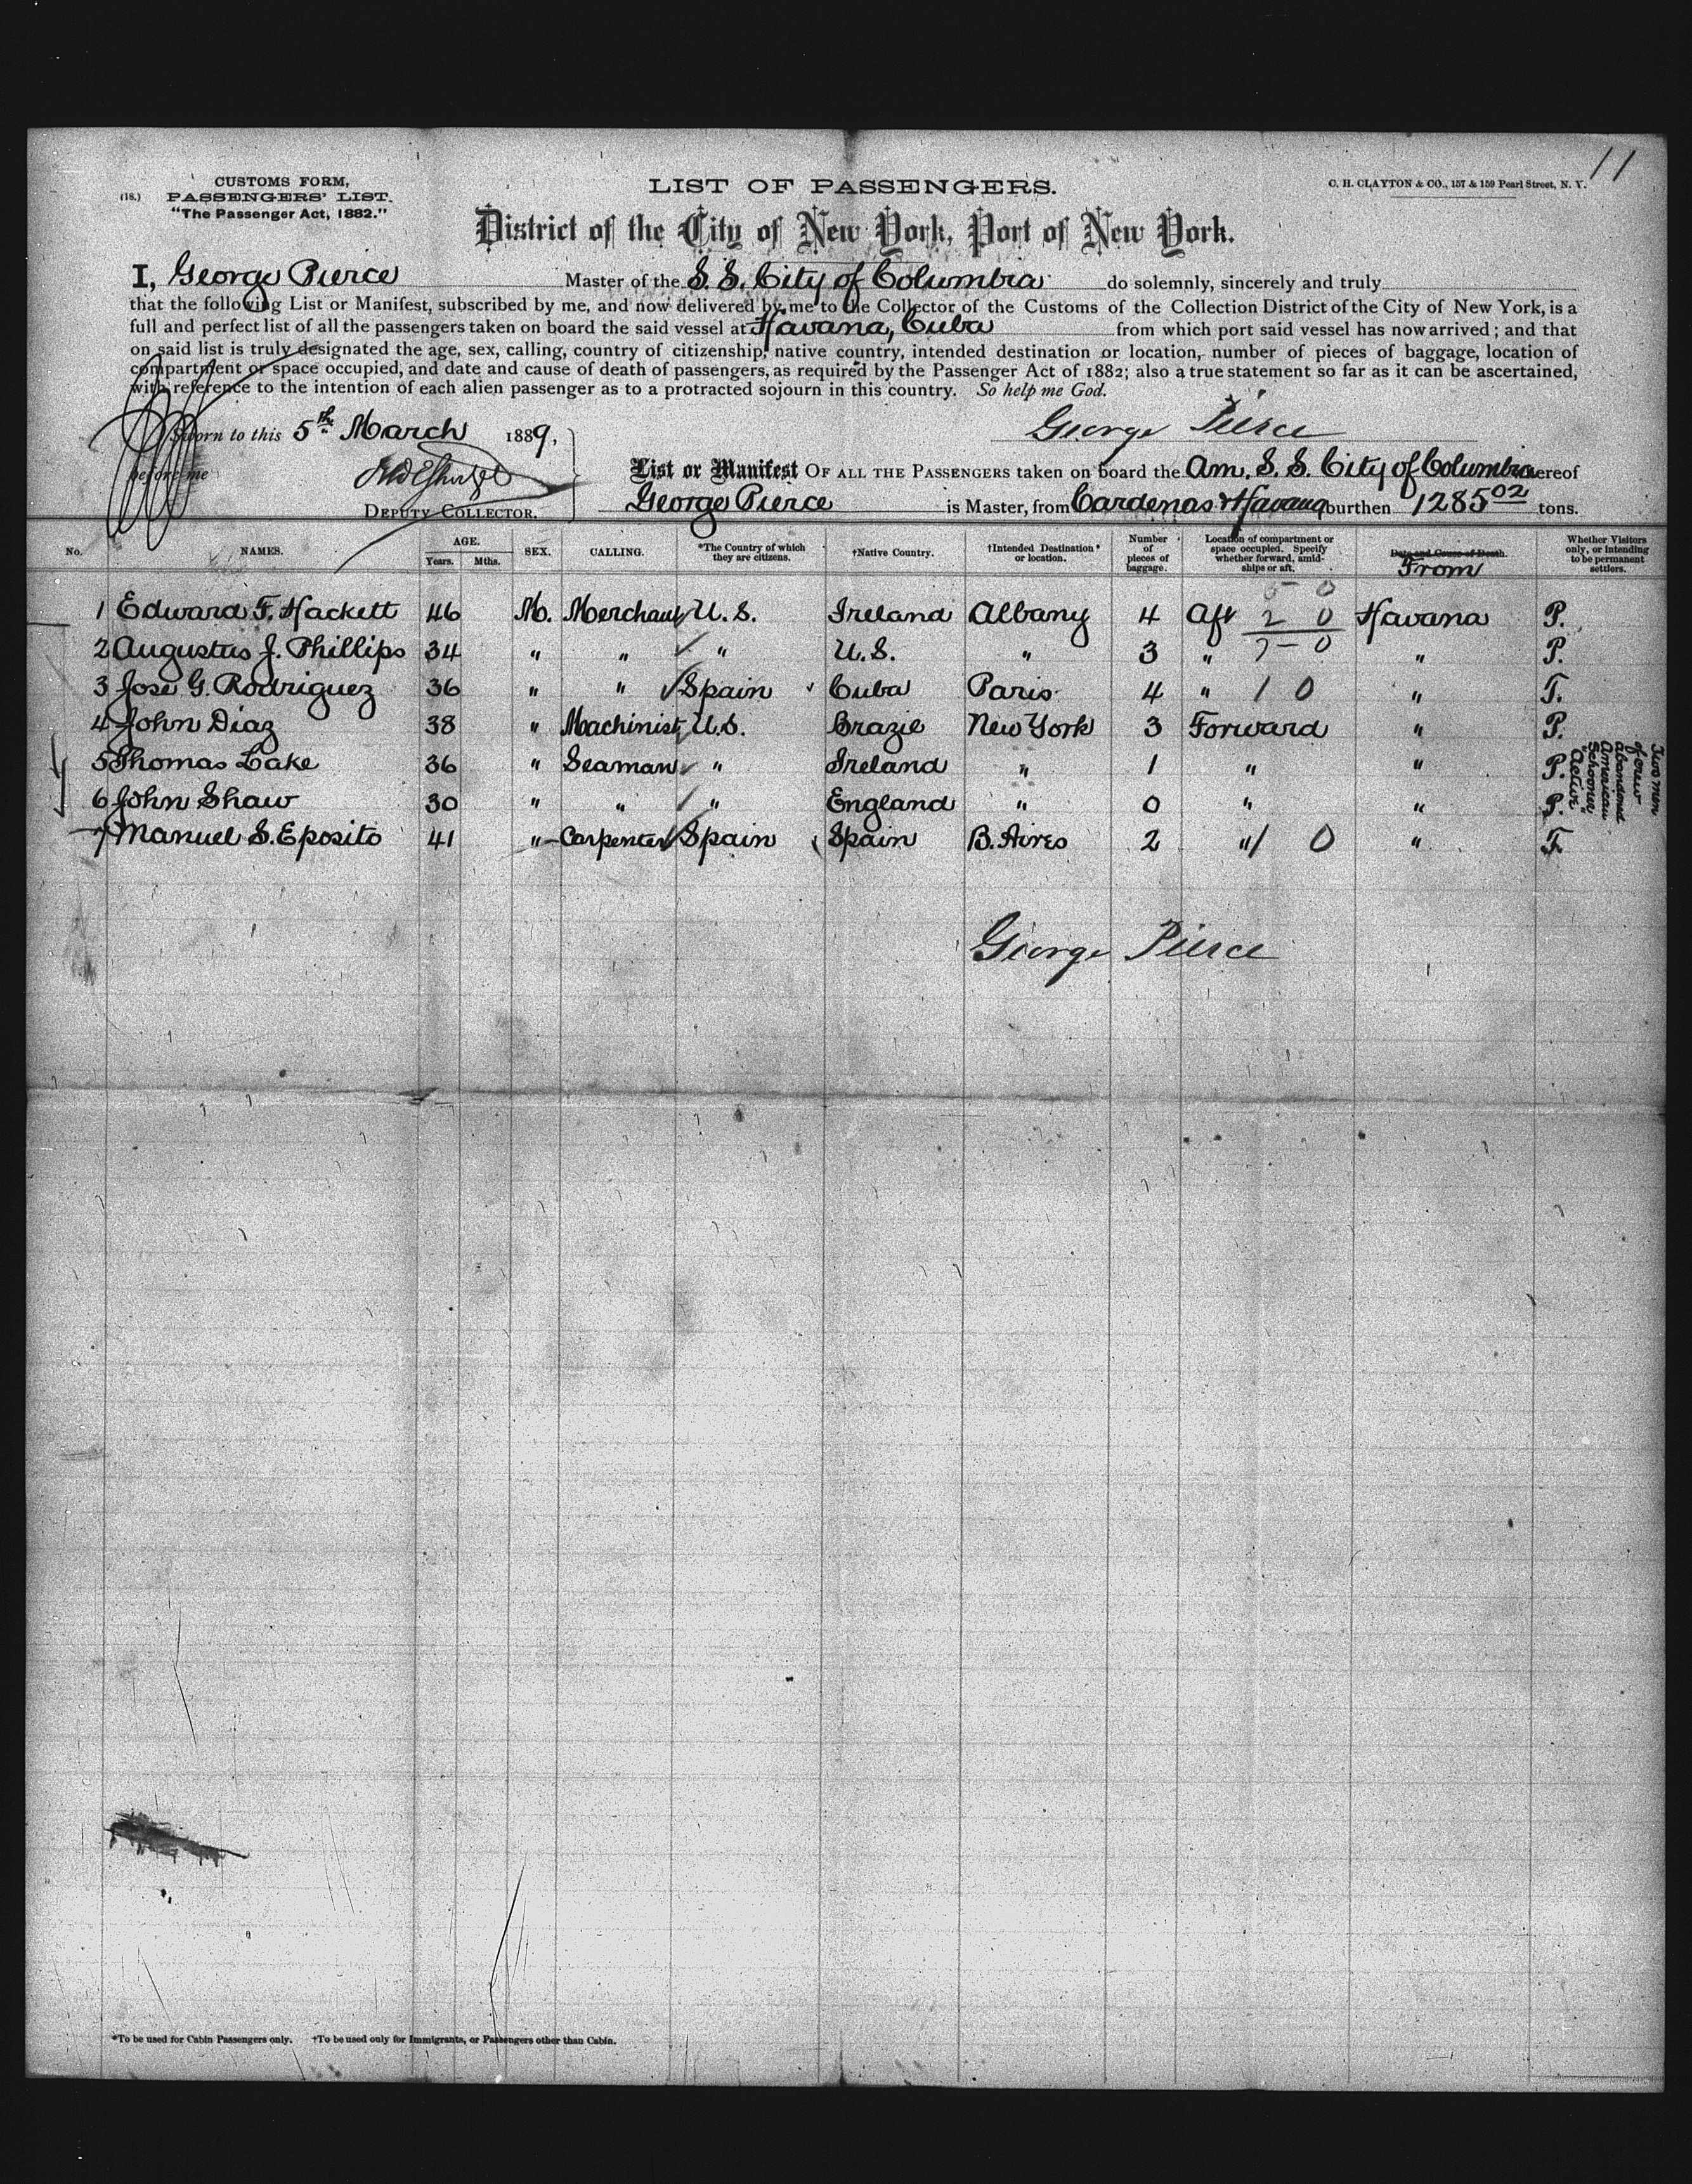 11
CUSTOMS FORM,
(18.) PASSENGERS' LIST.
"The Passenger Act, 1882."
LIST OF PASSENGERS.
C. H. CLAYTON & CO., 157 & 159 Pearl Street, N. Y.
District of the City of New York, Port of New York.
I, George Pierce Master of the S. S. City of Columbia do solemnly, sincerely and truly
that the following List or Manifest, subscribed by me, and now delivered by me to the Collector of the Customs of the Collection District of the City of New York, is a
full and perfect list of all the passengers taken on board the said vessel at Havana, Cuba from which port said vessel has now arrived; and that
on said list is truly designated the age, sex, calling, country of citizenship, native country, intended destination or location, number of pieces of baggage, location of
compartment or space occupied, and date and cause of death of passengers, as required by the Passenger Act of 1882; also a true statement so far as it can be ascertained,
with reference to the intention of each alien passenger as to a protracted sojourn in this country. So help me God.
Sworn to this 5th March 1889,
George Pierce
before me
List or Manifest OF ALL THE PASSENGERS taken on board the Am. S. S. City of Columbia whereof
DEPUTY COLLECTOR.
George Pierce is Master, from Cardenas & Havana burthen 1285 02 tons.
No. NAMES. AGE. Years. Mths. SEX. CALLING. *The Country of which they are citizens. †Native Country. †Intended Destination* or location. Number of pieces of baggage. Location of compartment or space occupied. Specify whether forward, amidships or aft. Date and Cause of Death. From Whether Visitors only, or intending to be permanent settlers.
5 0
1 Edward F. Hackett 46 M. Merchant U.S. Ireland Albany 4 Aft 2 0 Havana P.
2 Augustus J. Phillips 34 " " " U.S. " 3 " 7-0 " P.
3 Jose G. Rodriguez 36 " " Spain Cuba Paris 4 " 1 0 " T.
4 John Diaz 38 " Machinist U.S. Brazil New York 3 Forward " P.
5 Thomas Lake 36 " Seaman " Ireland " 1 " " P.
6 John Shaw 30 " " " England " 0 " " P.
7 Manuel S. Eposito 41 " Carpenter Spain Spain B. Aires 2 " 1 0 " T.
Two men
of crew
abandoned
American
Schooner
"Active"
George Pierce
*To be used for Cabin Passengers only. †To be used only for Immigrants, or Passengers other than Cabin.